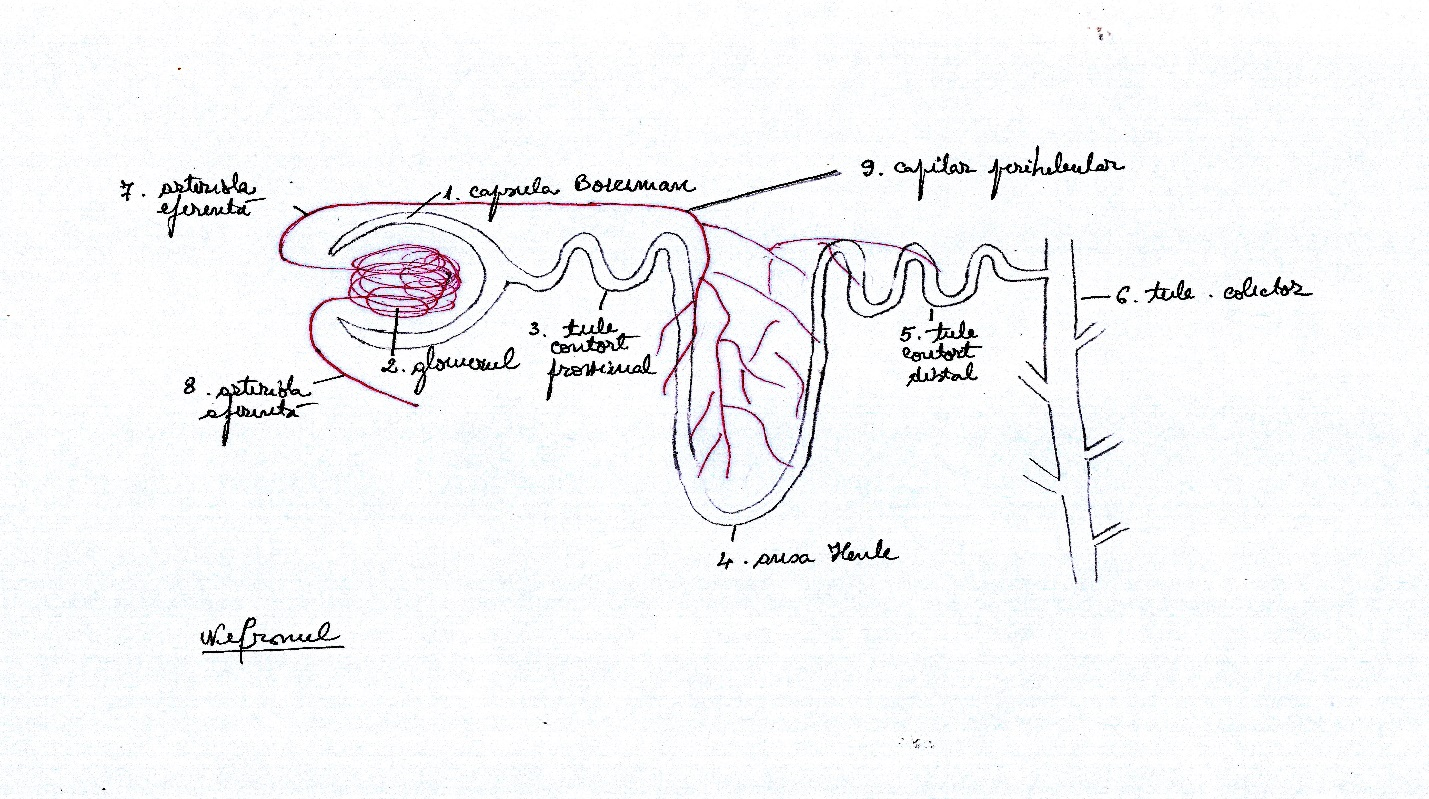 7. arteriola
eferentă
1. capsula Bowman
9. capilar peritubular
6. tub. colector
3. tub
contort
proximal
5. tub
contort
distal
2. glomerul
8. arteriola
aferentă
4. ansa Henle
Nefronul